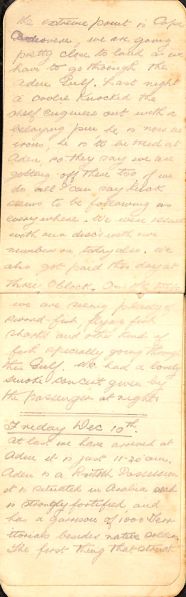 the extreme point is Cape
we are going
pretty close to land as we
have to go through the
Aden Gulf. Last night
a cooke knocked the
chief engineer out with a
belaying pin he is now in
irons, he is to be tried at
Aden so they say we are
getting off there too if we
do all I can say is bad
seems to be following us
everywhere. We were issued
with new discs with our
number on today also. We
also got paid this day at
three O'clock. On the
we are seeing plenty
sword-fish, flying fish
sharks and other kinds of
fish especially going through
this Gulf. We had a lovely
smoke concert given by
the passengers at night.
Friday Dec 10th.
At last we have arrived at
Aden it is just 11-20 am,
Aden is a British Possession
it is situated in Arabia and
is strongly fortified, and
has a garrison of 1000 Terr-
itorials besides native soldiers
The first thing that struck